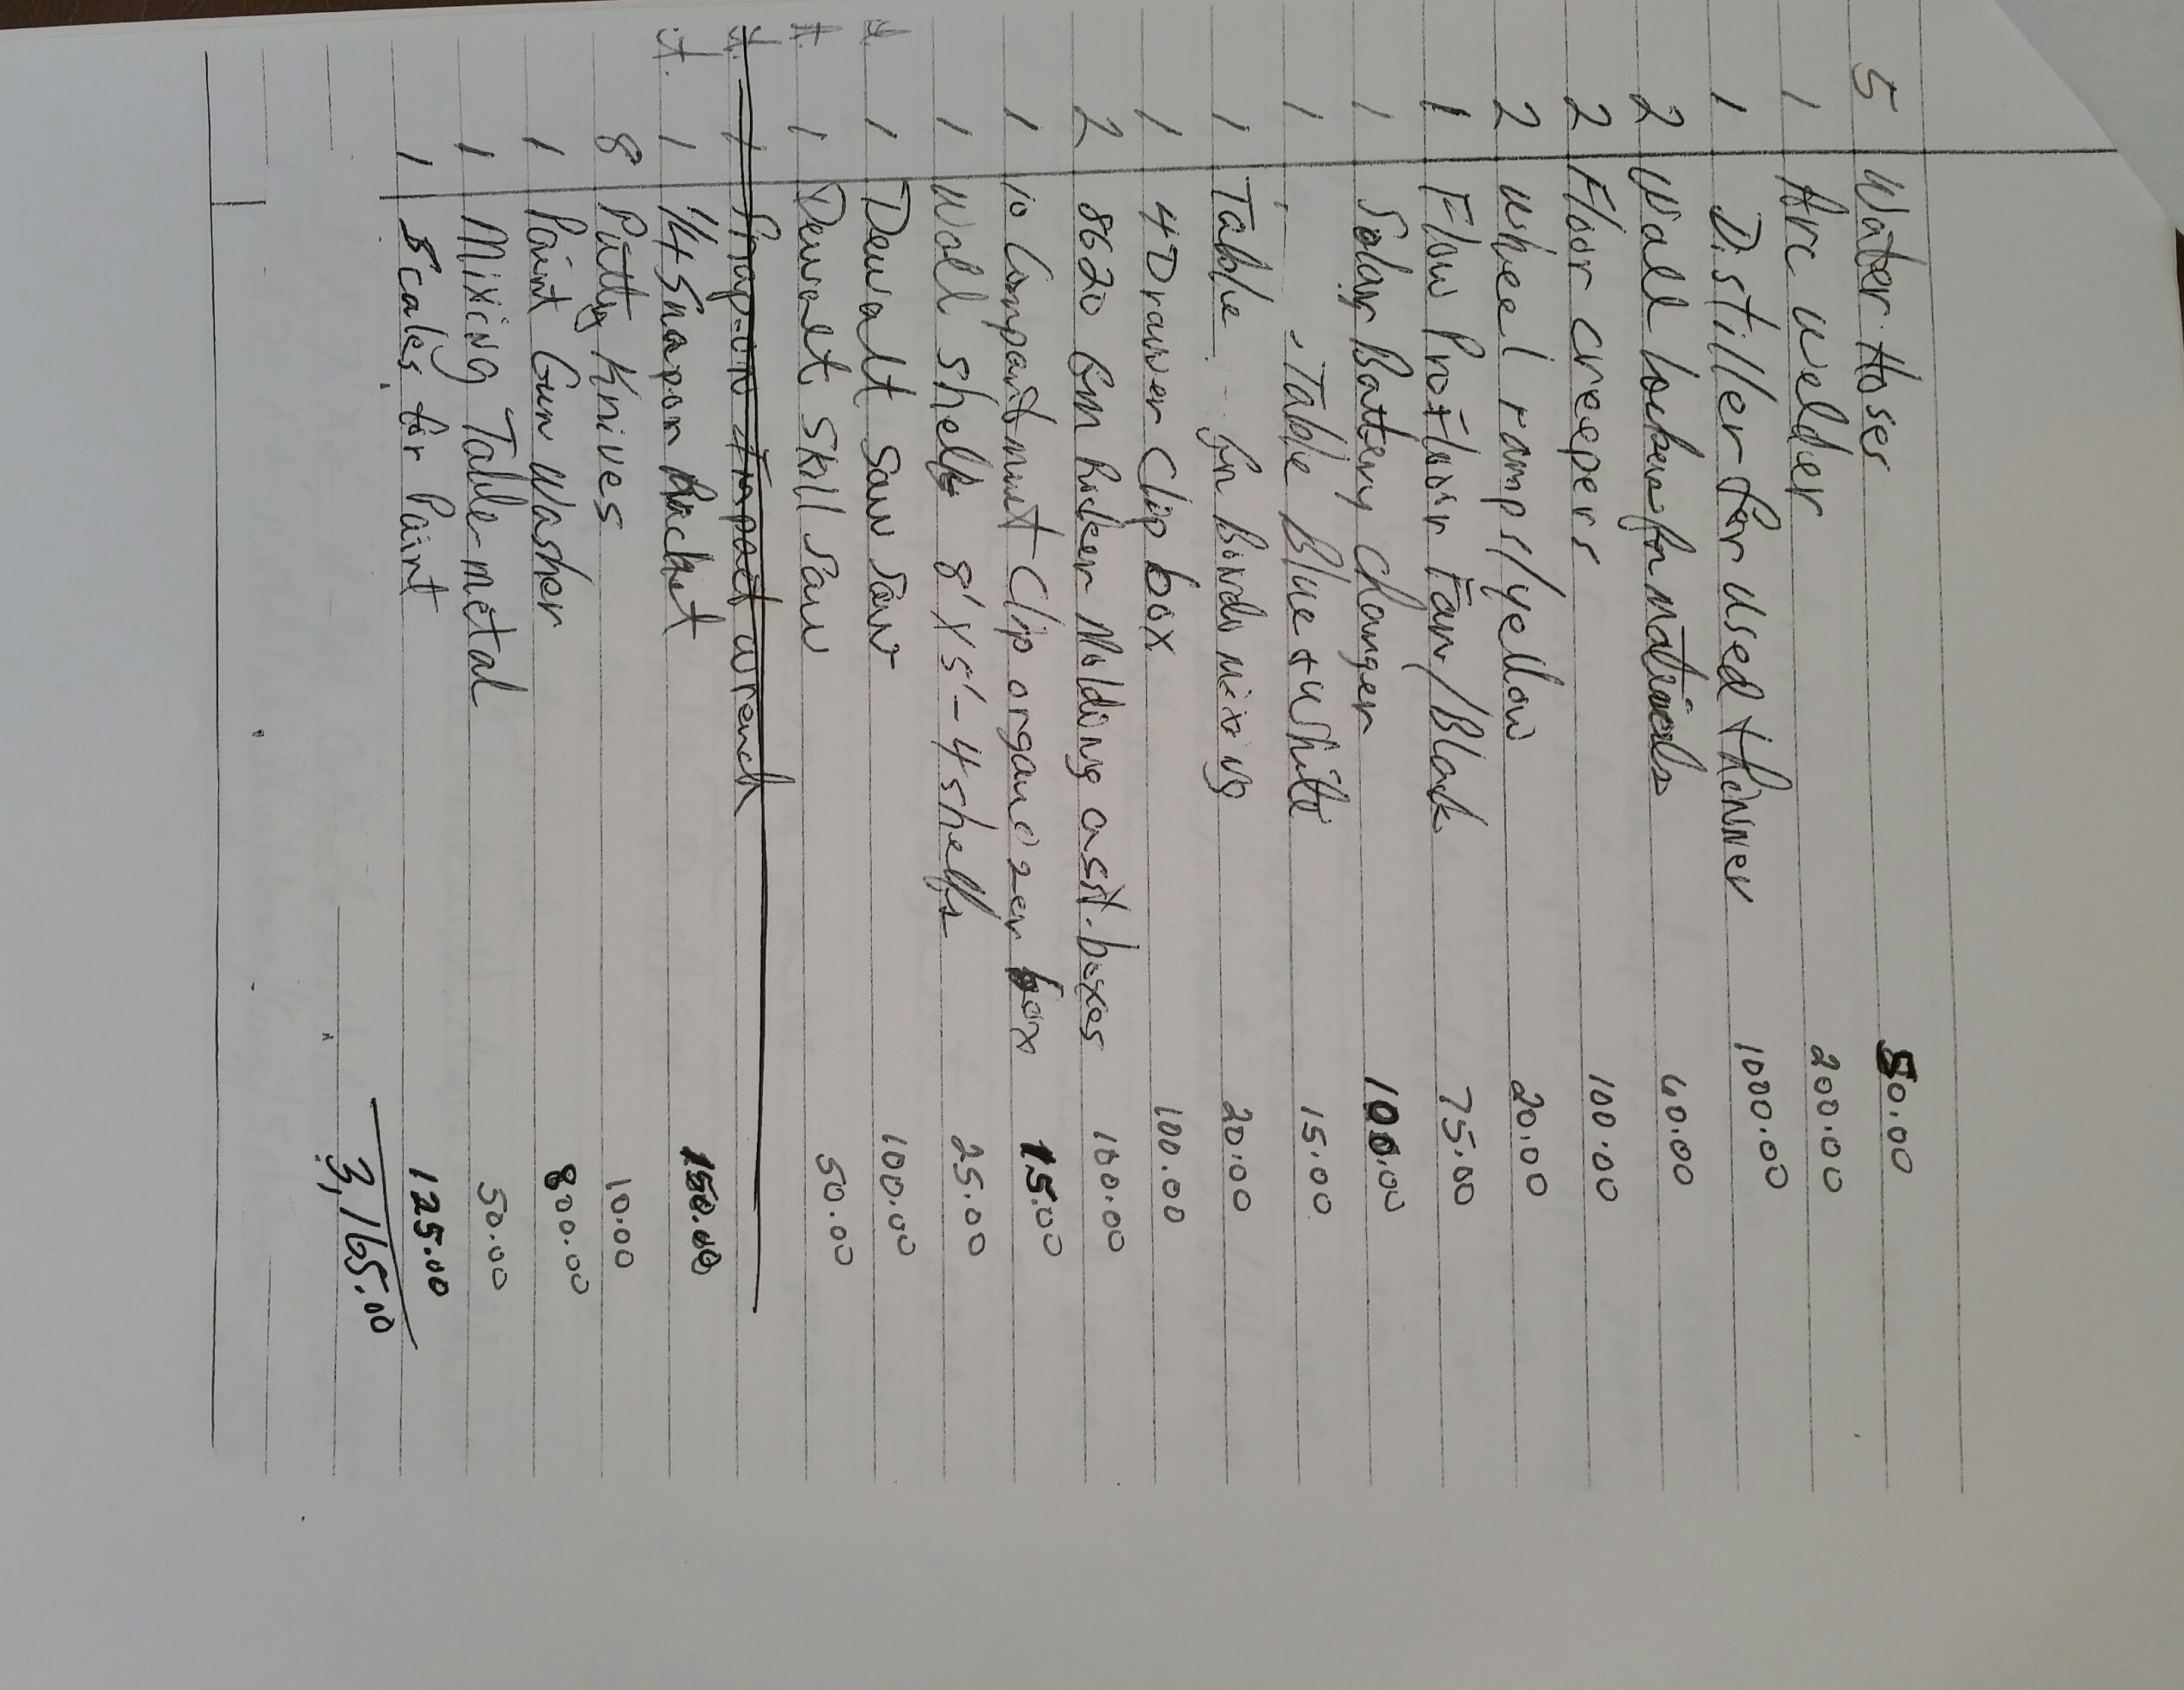 5 Water Hoses 50.00
1 Arc welder 200.00
1 Distiller for used thinner 1000.00
2 Wall lockers for materials 40.00
2 Floor creepers 100.00
2 wheel ramps/yellow 20.00
1 Flow Pro Floor Fan/Black 75.00
1 Solar Battery Charger 100.00
1 Table Blue + white 15.00
1 Table for Bondo mixing 20.00
1 4 Drawer Clip box 100.00
2 8620 Gm Rocker Molding asst. boxes 100.00
1 10 Compartment Clip organizer box 15.00
1 Wod shelf 8'x5'-4 shelfs 25.00
it. 1 Dewalt Saw Saw 100.00
it. 1 Dewalt Skill Saw 50.00
it. 1 Snap-on Impact wrench
it. 1 1/4 Snapon Rachet 150.00
8 Putty Knives 10.00
1 Paint Gun Washer 800.00
1 Mixing Table-metal 50.00
1 Scales for Paint 125.00
3,165.00